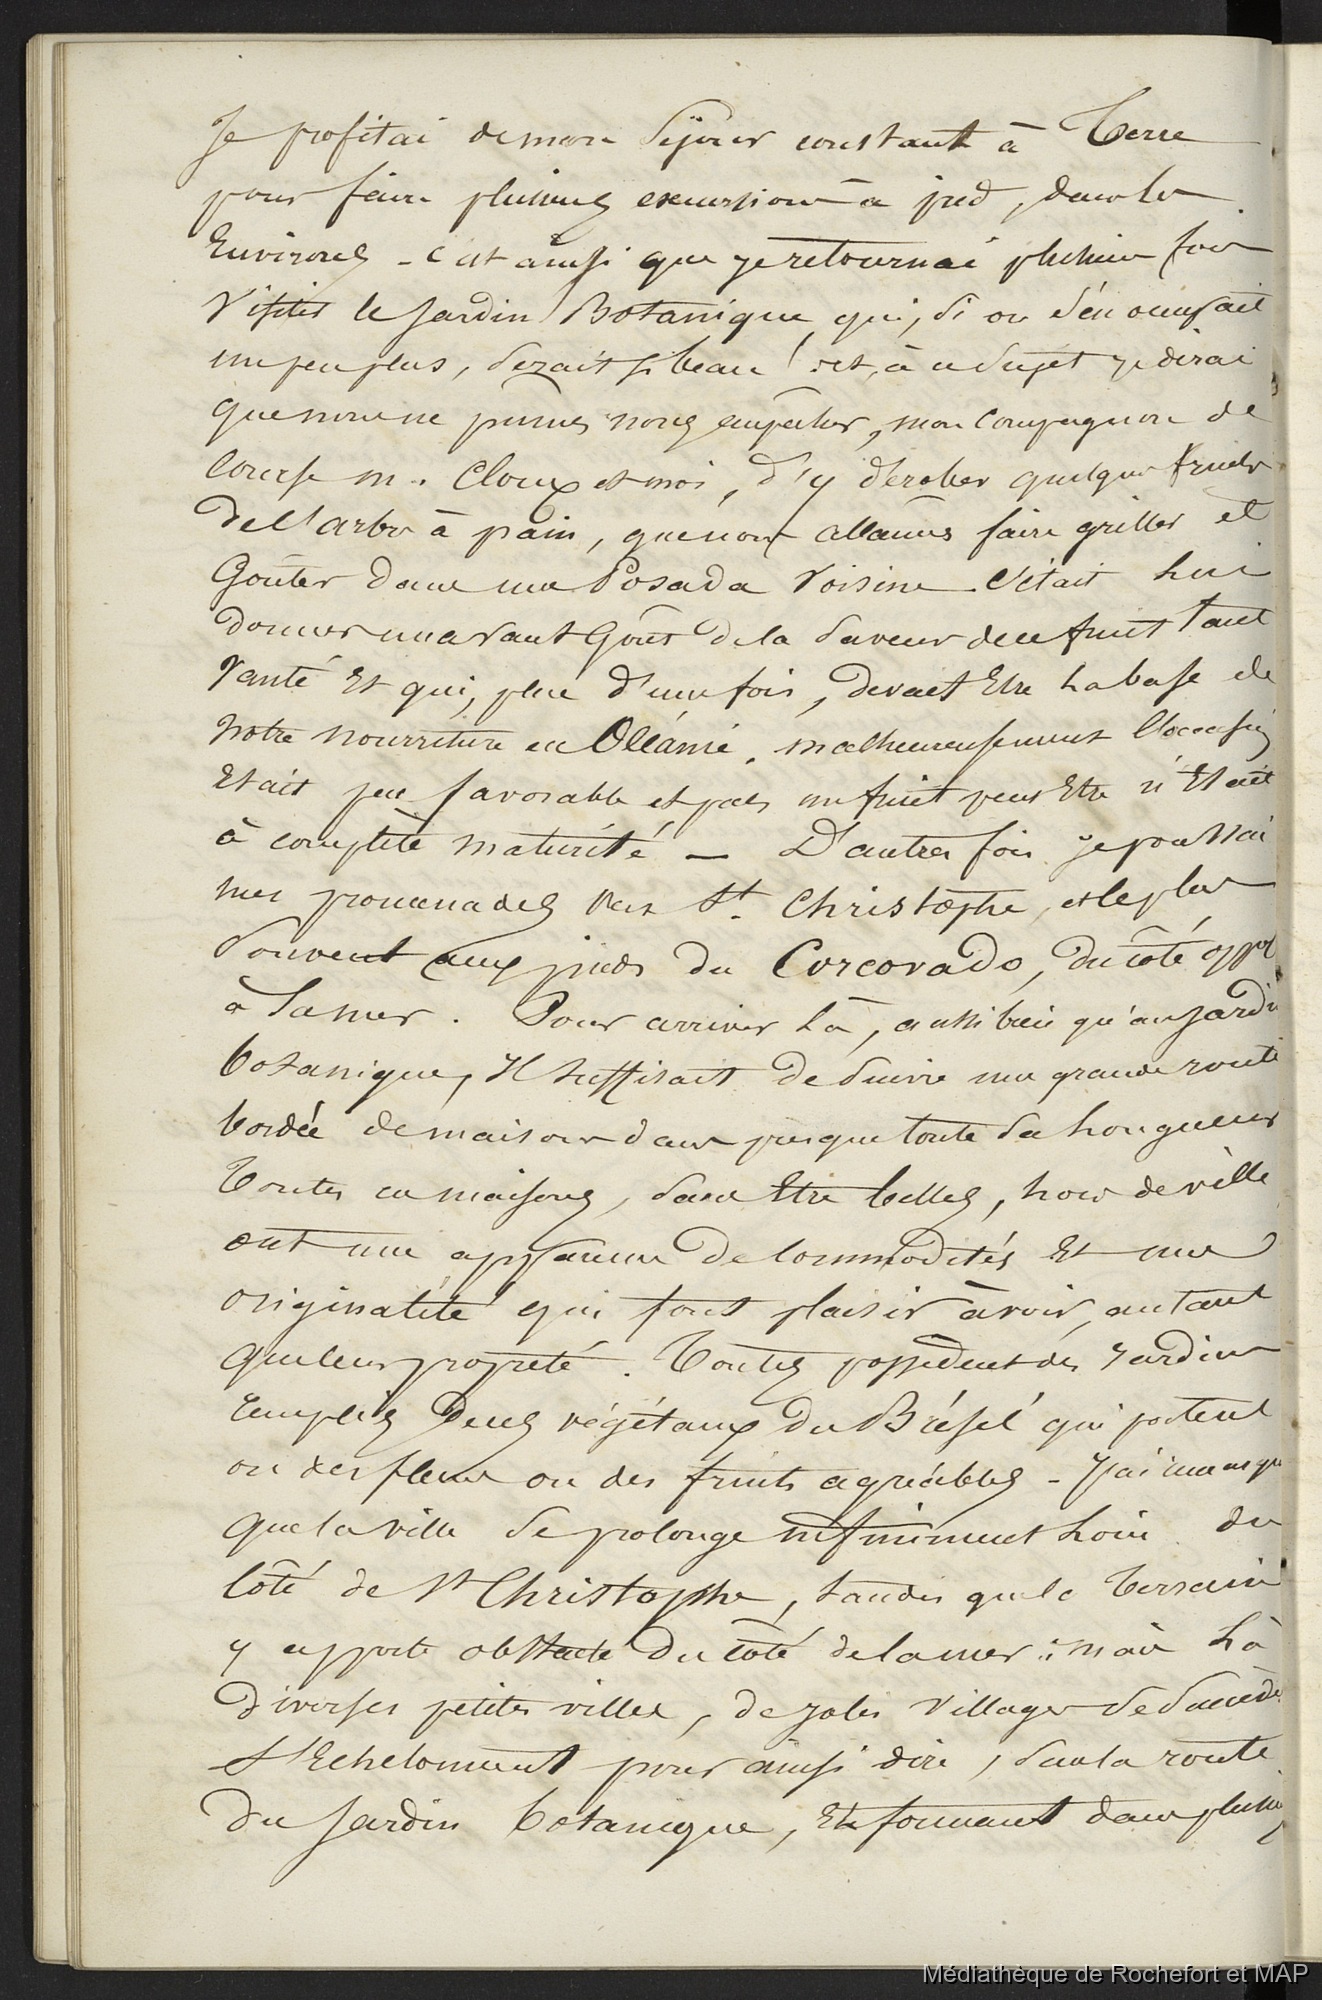 Je profitai de mon séjour constant à Terre
pour faire plusieurs excursions à pied, dans les
Environs - c'est ainsi que je retournai plusieurs fois
visiter le jardin Botanique, qui, si on s'en occupait
un peu plus, serait si beau ! et, à ce sujet je dirai
que nous ne pûmes nous empêcher, mon compagnon de
course m. Cloux et moi, d'y dérober quelques fruits
de l'arbre à pain, que nous allâmes faire griller et
Goûter dans une Posada voisine. C'était lui
donner un avant Goût de la saveur de ce fruit tant
vanté Et qui, plus d'une fois, devait Etre la base de
notre nourriture en Océanie. malheureusement l'occasion
Etait peu favorable et pas un fruit peut Etre n'Etait
à complète maturité — D'autres fois je poussai
mes promenades vers St. Christophe, et le plus
souvent aux pieds du Corcovado, du côté oppo
à la mer. Pour arriver là, aussi bien qu'au jardin
botanique, Il suffisait de suivre une grande route
bordée de maisons dans presque toute sa longueur
Toutes ces maisons, sans Etre belles, hors de ville
ont une apparence de commodités Et une
originalité qui font plaisir à voir, autant
que leur propreté. Toutes possèdent des jardins
remplis de ces végétaux du Brésil qui portent
ou des fleurs ou des fruits agréables - J'ai remarqué
que la ville se prolonge infiniment loin du
côté de St Christophe, tandis que le terrain
y apporte obstacle du côté de la mer ; mais là
diverses petites villes, de jolis villages se succèdent
s'Echelonnent pour ainsi dire, sur la route
du jardin botanique, Et forment dans plusieurs